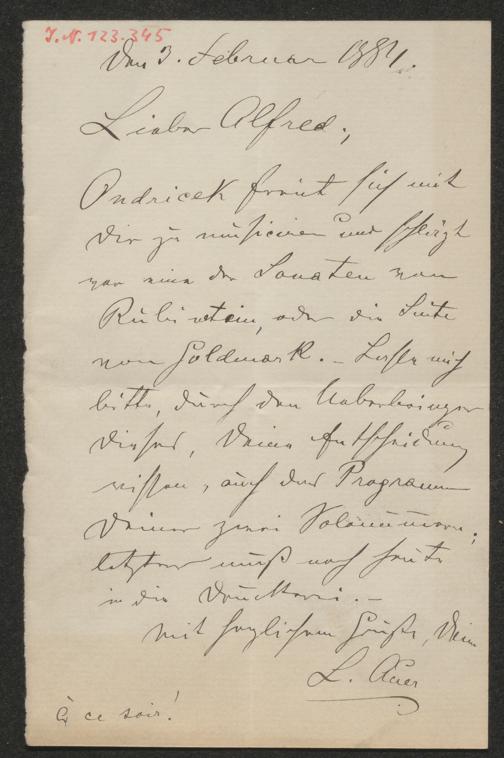 I.N. 123.345
Den 3. Februar 1884.
Lieber Alfred,
Ondricek freut sich mit
Dir zu musiciren und schlägt
vor eine der Sonaten von
Rubinstein, oder die Suite
von Goldmark. – Lasse mich
bitte, durch den Ueberbringer
dieses, Deine Entscheidung
wissen, auch das Programm
Deiner zwei Solonummern;
letzteres muß noch heute
in die Druckerei. –
Mit herzlichem Gruße, Dein
L. Auer
À ce soir!